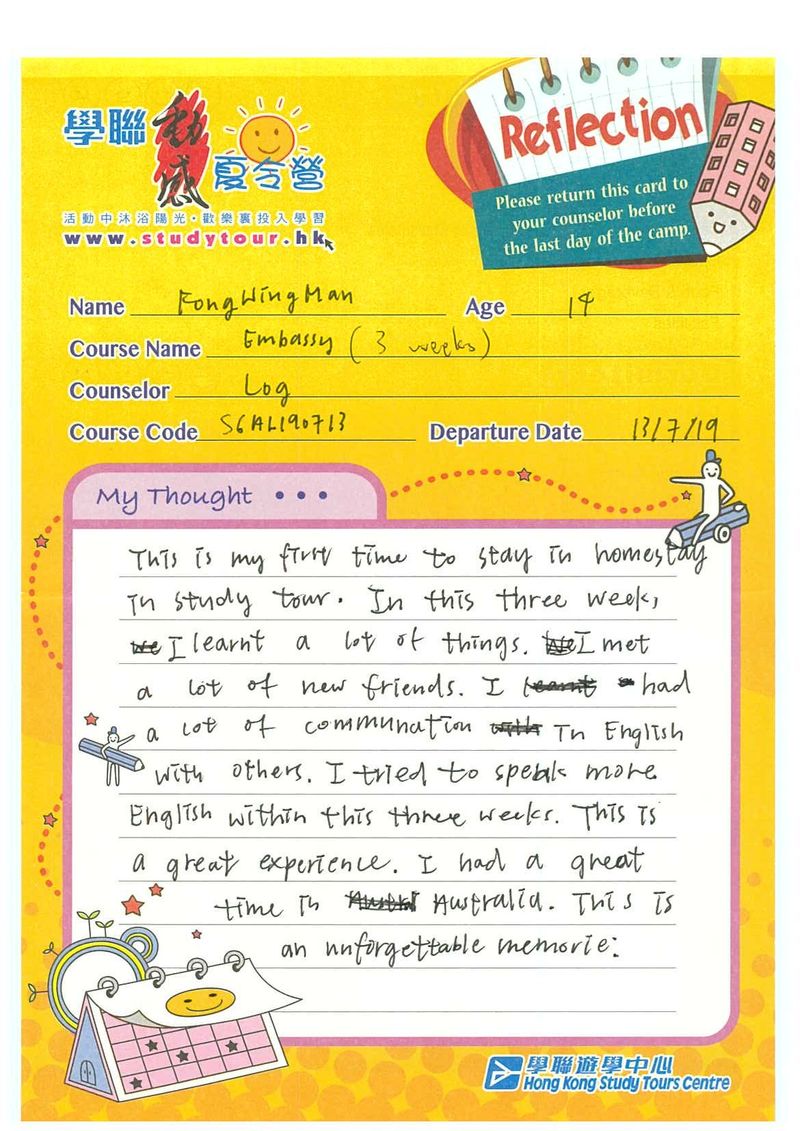 學聯動感夏令營
活動中沐浴陽光·歡樂裏投入學習
www.studytour.hk
Reflection
Please return this card to
your counselor before
the last day of the camp.
Name Fong Wing Man Age 14
Course Name Embassy (3 weeks)
Counselor Log
Course Code SGAL190713 Departure Date 13/7/19
My Thought • • •
This is my first time to stay in homestay
in study tour. In this three week,
We I learnt a lot of things. We I met
a lot of new friends. I learnt a had
a lot of communation with in English
with others. I tried to speak more
English within this three weeks. This is
a great experience. I had a great
time in Australia. This is
an unforgettable memorie.
學聯遊學中心
Hong Kong Study Tours Centre